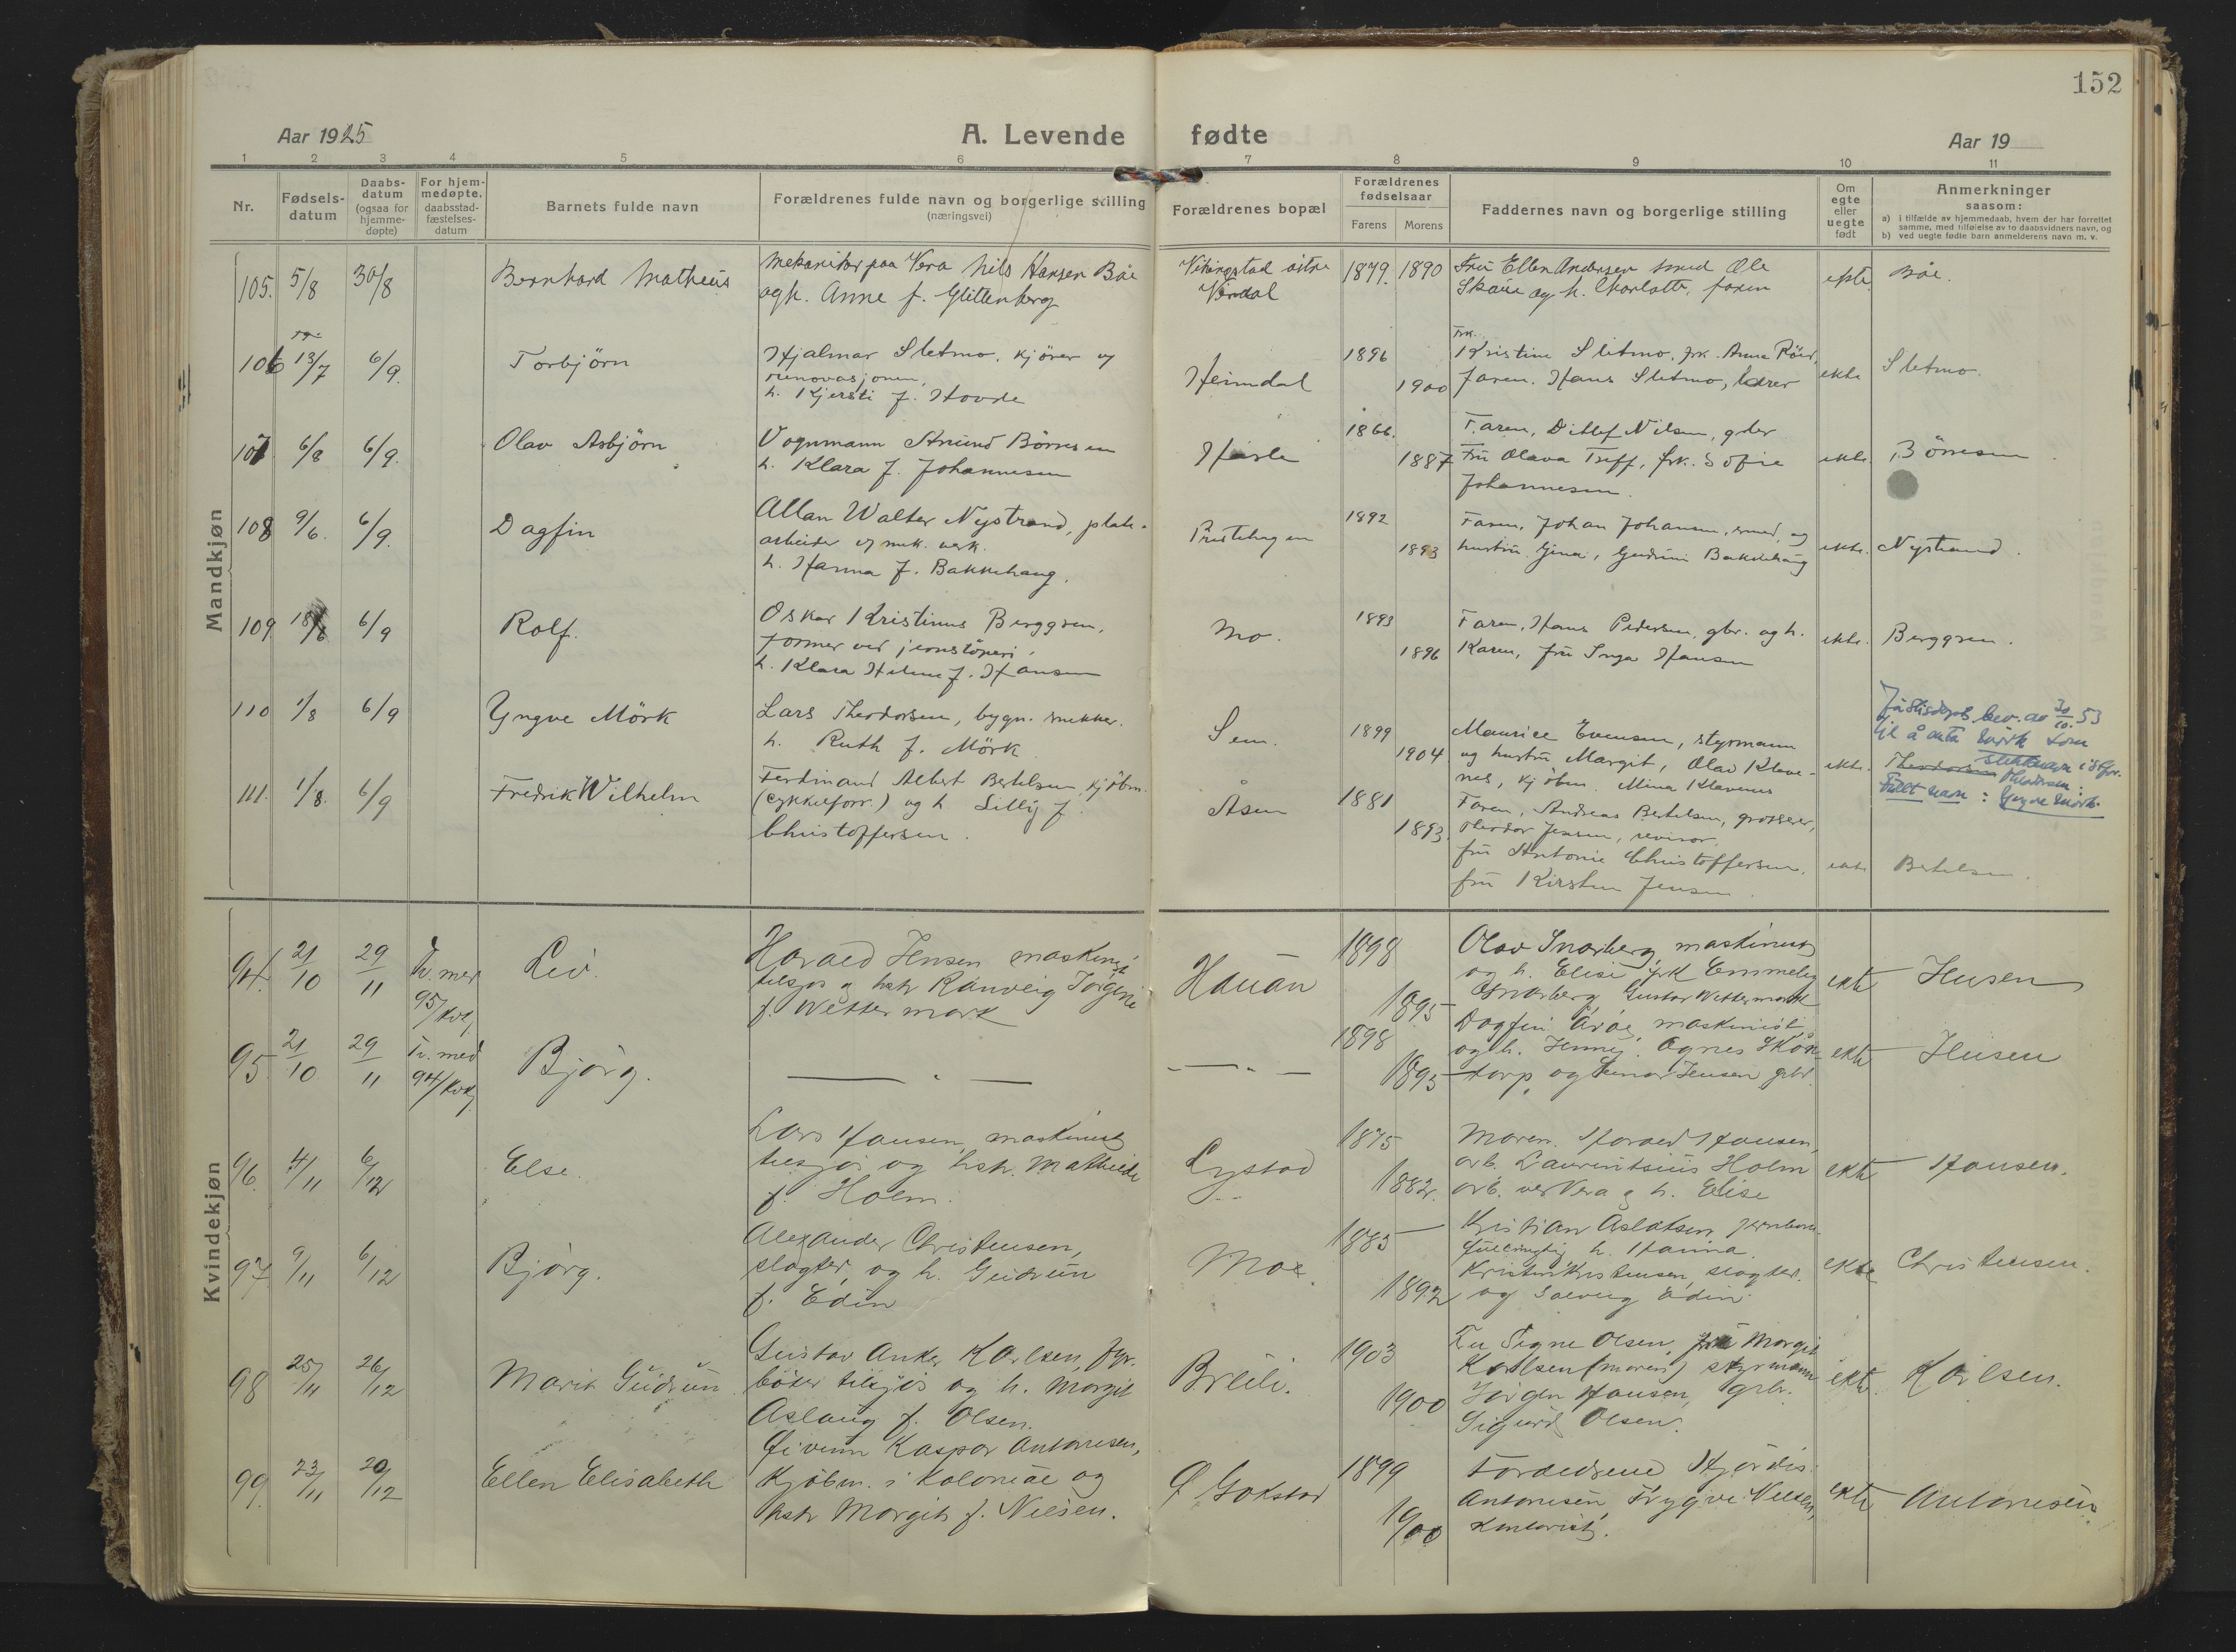 152
Aar 1925
A. Levende fødte
Aar 19
1 2 3 4 5 6 7 8 9 10 11
Nr.
Fødsels-
datum
Daabs-
datum
(ogsaa for
hjemme-
døpte)
For hjem-
medøpte,
daabsstad-
fæstelses-
datum
Barnets fulde navn
Forældrenes fulde navn og borgerlige stilling
(næringsvei)
Forældrenes bopæl
Forældrenes
fødselsaar
Farens Morens
Faddernes navn og borgerlige stilling
Om
egte
eller
uegte
født
Anmerkninger
saasom:
a) i tilfælde av hjemmedaab, hvem der har forrettet
samme, med tilføielse av to daabsvidners navn, og
b) ved uegte fødte barn anmelderens navn m. v.
Mandkjøn
105. 5/8 30/8
Bernhard Matheus
Mekaniker paa Vera Nils Hansen Bøe
og h. Anne f. Glittenberg
Vikingstad østre
1879. 1890
Fru Ellen Andersen smed Ole
og h. Charlotte, faren
ekte.
Bøe.
106 13/7 6/9.
Torbjörn
Hjalmar Sletmo, kjører og
renovasjonen,
h. Kjersti f. Hovde
Heimdal
1896
1900
Frk.
Kristine Sletmo, frk. Anna
faren. Hans Sletmo, lærer
ekte
Sletmo.
107 6/8 6/9.
Olav Asbjörn
Vognmann Amund Börresen
h. Klara f. Johannesen
Hasle
1866.
1887
Faren, Ditlef Nilsen, gbr
Fru Olava Treff, frk. Sofie
Johannesen.
ekte.
Börresen
108 9/6. 6/9.
Dagfin
Allan Walter Nystrand, plate-
arbeider v/ mek. verk.
h. Hanna f. Bakkehaug.
Prestehagen
1892
1893
Faren, Johan Johansen, smed, og
hustru Gina, Gudrun Bakkehaug
ekte.
Nystrand.
109 18/6 6/9
Rolf.
Oskar Kristinus Berggren,
former ved jernstöperi,
h. Klara Helene f. Hansen
Mo.
1893
1896
Faren, Hans Pedersen, gbr. og h.
Karen, fru Inga Hansen
ekte.
Berggren.
110 1/8 6/9
Yngve Mörk
Lars Theodorsen, bygn. snekker.
h. Ruth f. Mörk
Sem.
1899
1904
Maurice Evensen, styrmann
og hustru Margit, Olav Klave-
nes, kjöbm. Mina Klavenes
ekte.
Justisdepts bev. av 30/10.53
til å anta Mörk som
slektsnavn istf.
Theodorsen
Theodorsen.
Fullt navn: Yngve Mörk.
111. 1/8. 6/9
Fredrik Wilhelm
Ferdinand Albert Bertelsen kjöbm.
(cykkelforr.) og h. Lilly f.
Christoffersen.
Åsen
1881
1893.
Faren, Andreas Bertelsen, grosserer,
Theodor Jensen, revisor,
fru Antonie Christoffersen.
fru Kirsten Jensen.
ekte
Bertelsen.
Kvindekjøn
94. 21/10 29/11
Tv. med
95/kvk,
Liv.
Harald Jensen maskinist
tilsjøs og hstr Ranveig Jørgine
f. Wettermark
Hauan
1898
1895
Olav Snarberg, maskinist
og h. Elise frk Emmely
Snarberg Gustav Wettermark
ekte
Jensen
95. 21/10 29/11
Tv. med
94/kvk,
Bjørg.
— " —
— " —
1898
1895
Dagfin Årøe, maskinist,
og h. Jenny. Agnes Skon-
torp, og Einar Jensen gbr.
ekte
Jensen
96. 4/11 6/12
Else.
Lars Hansen, maskinist
tilsjøs og hstr. Mathilde
f. Holm.
Lystad
1875
1882.
Moren. Harald Hansen,
arb. Laurintsius Holm
arb. ved Vera og h. Elise
ekte
Hansen.
97. 9/11 6/12
Bjørg.
Alexander Christensen,
slagter, og h. Gudrun
f. Edin
Moe.
1885
1892
Kristian Aslaksen, jernbane-
fullmegtig h. Hanna.
Kristen Kristensen, slagter.
og Solveig Edin
ekte
Christensen.
98 25/11 26/12
Marit Gudrun
Gustav Anker Karlsen, fyr-
bøter tilsjøs og h. Margit
Aslaug f. Olsen.
Breili.
1903
1900
Fru Signe Olsen, fru Margit
Karlsen (moren) styrmann
Jørgen Hansen, gbr.
Sigurd Olsen.
ekte.
Karlsen.
99. 23/11 20/12
Ellen Elisabeth
Øivinn Kaspar Antonisen,
kjøbm. i kolonial og
hstr Margit f. Nilsen.
Ø Gokstad
1899
1900
Foreldrene Hjørdis
Antonisen Trygve Nilsen,
kontorist.
ekte
Antonisen.